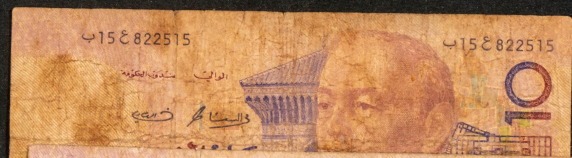 ب15ع822515
ب15ع822515
الوالي
مندوب الحكومة
10